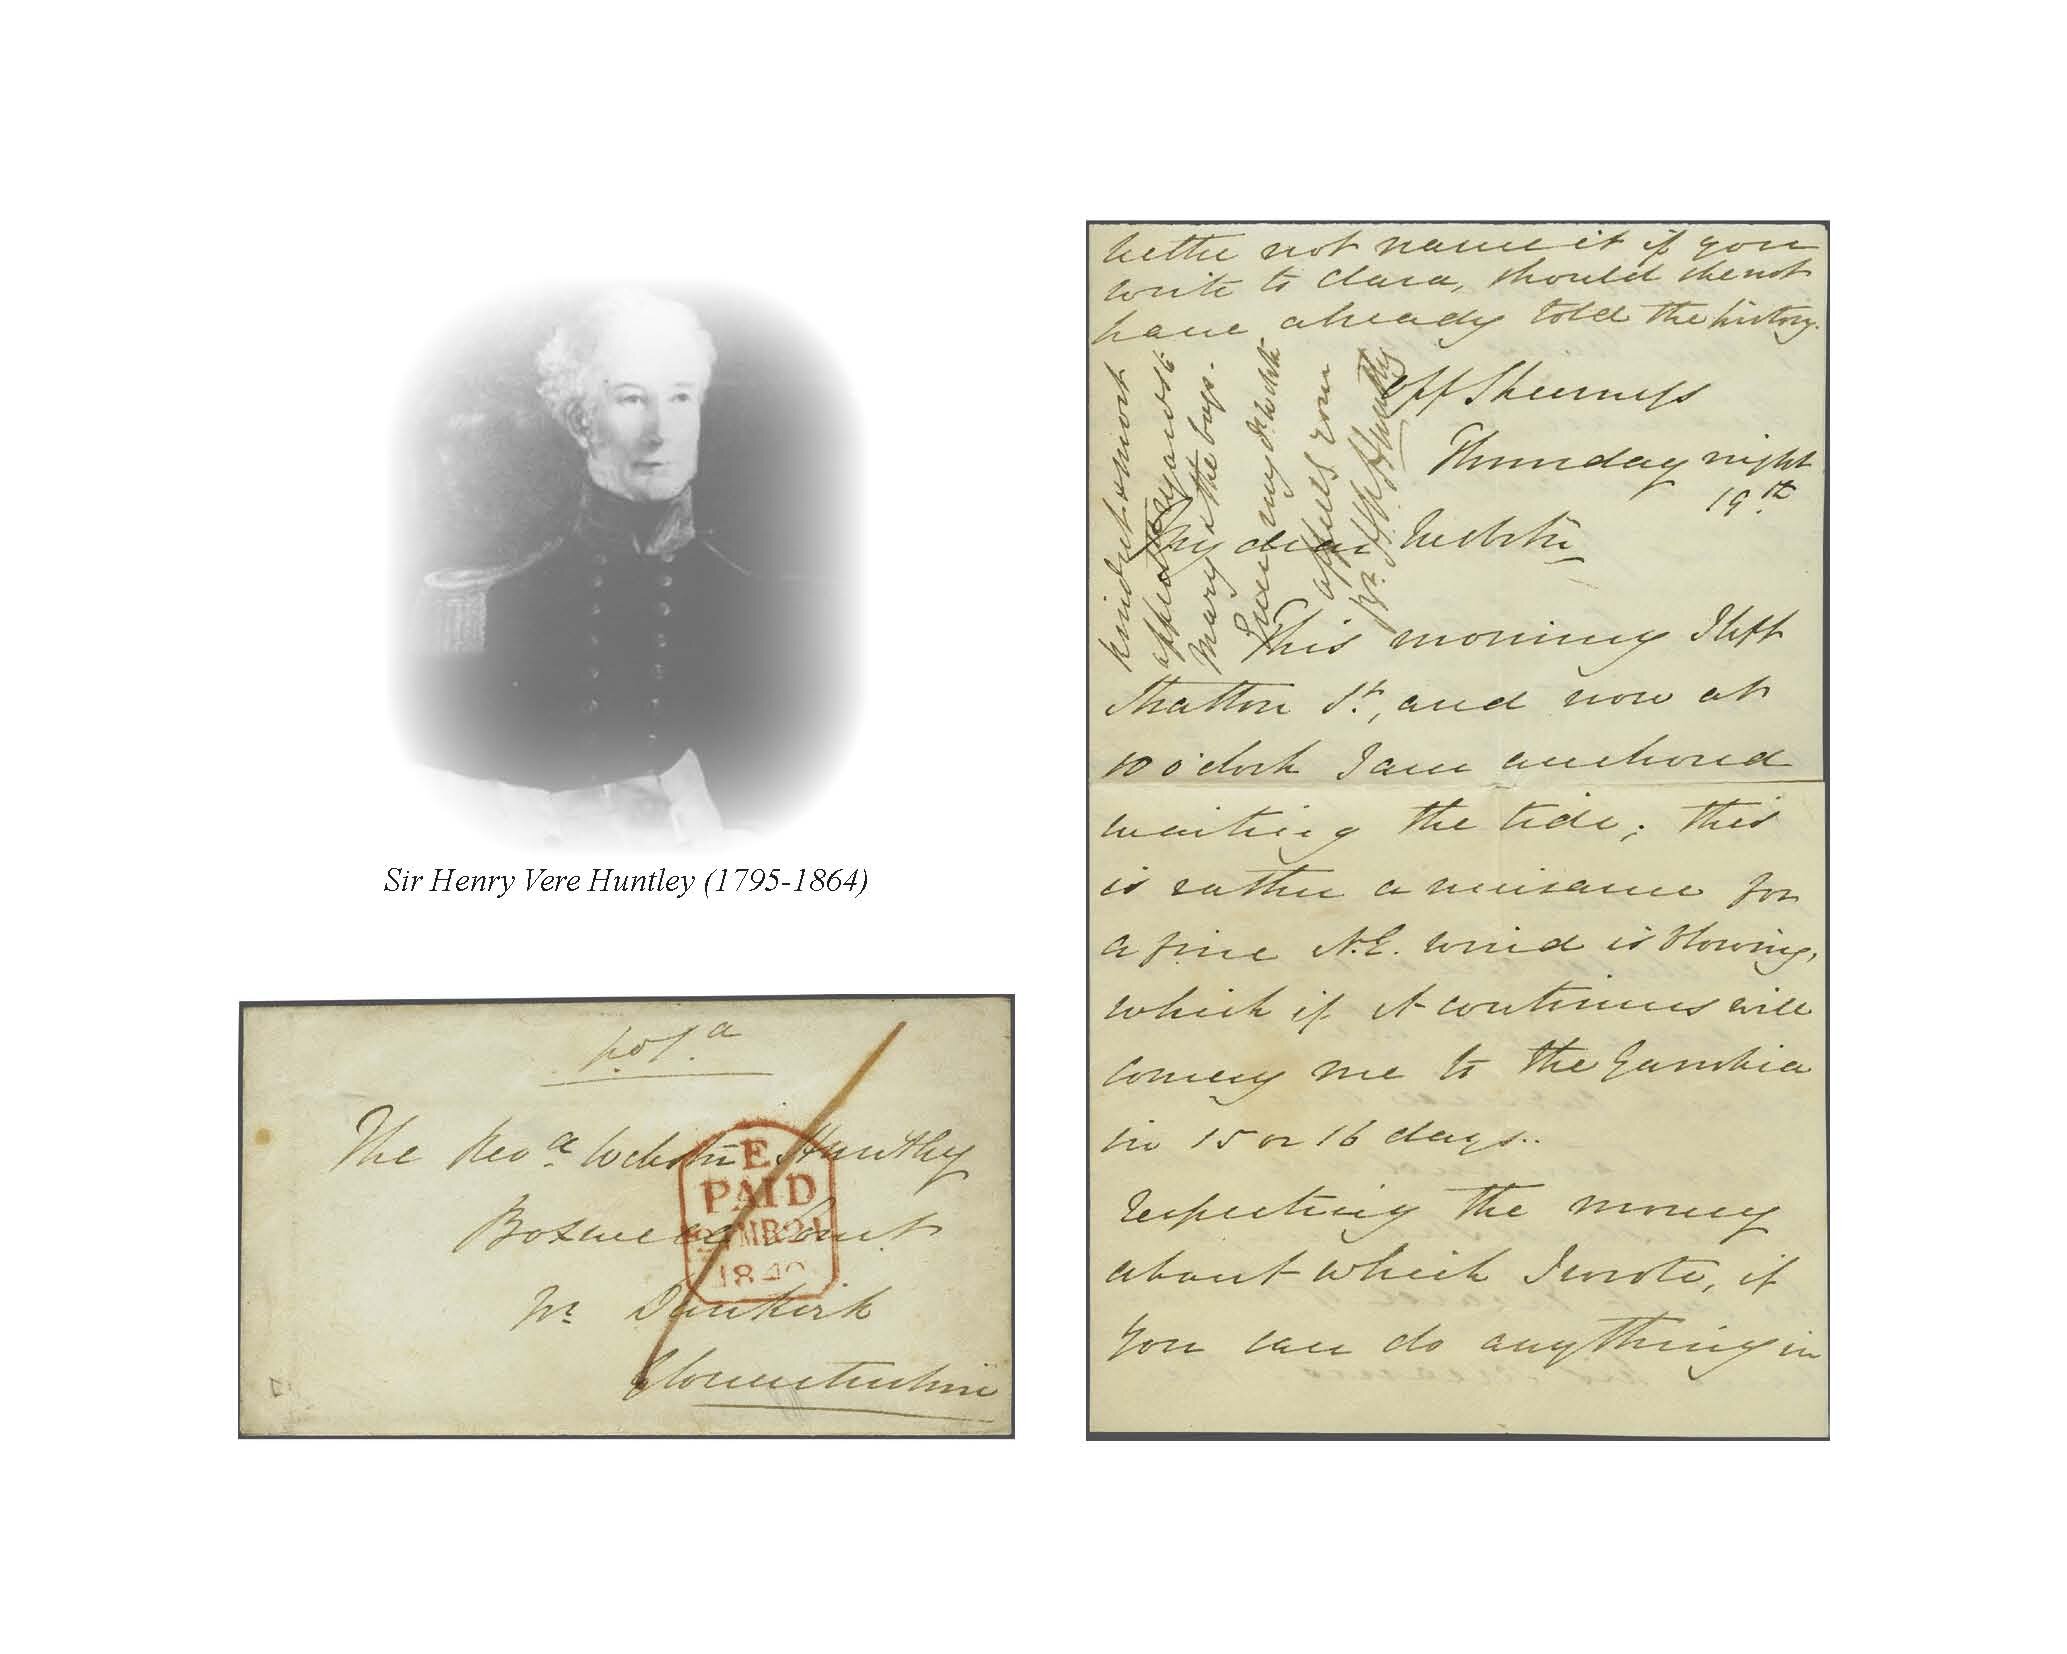 Sir Henry Vere Huntley (1795-1864)
p.o f.a
The Revd Webster Huntley
Boxwell Court
Nr Dunkirk
Gloucestershire
E
PAID
21 MR 21
1840
better not name it if you
write to Clara, should she not
have already told the history.
kindest & most
affect
Mary & the boys.
Ever my dr Webster
affect your
Br. H. V. Huntley
off Sheerness
Thursday night
19th
My dear Webster
This morning I left
Stratton St, and now at
10 o'clock I am anchored
waiting the tide; this
is rather a nuisance for
a fine N.E. wind is blowing,
which if it continues will
convey me to the Gambia
in 15 or 16 days..
respecting the money
about which I wrote, if
you can do anything in